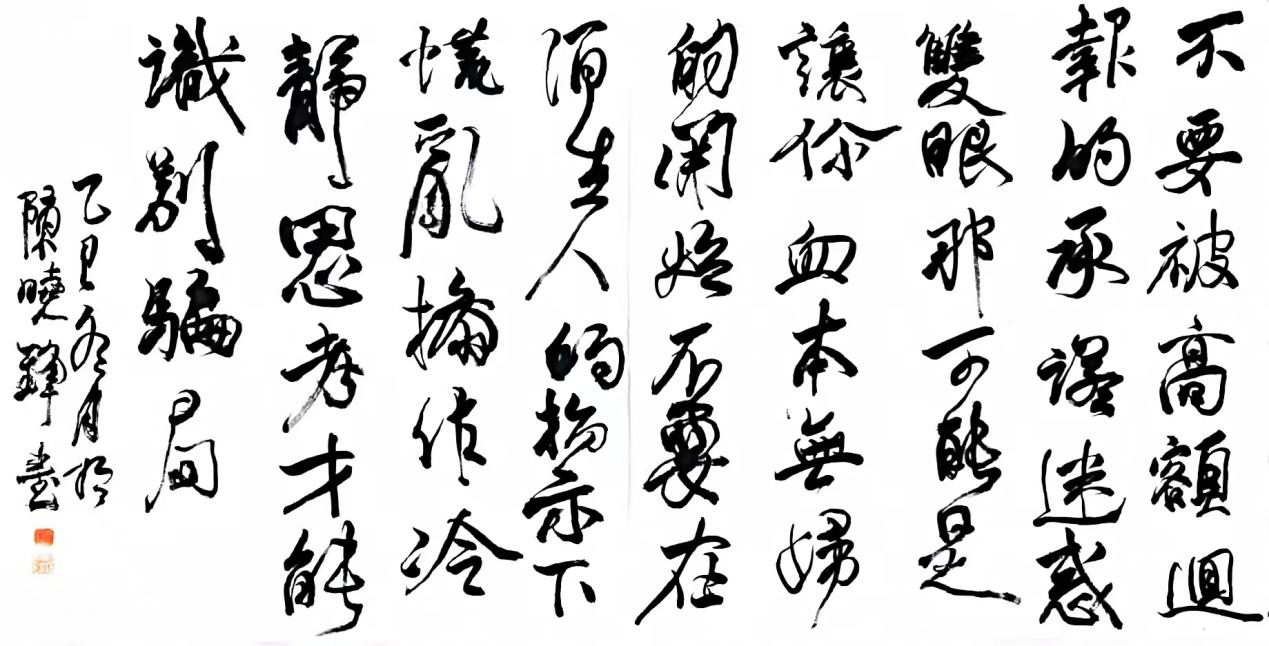 不要被高額迴
報的承諾迷惑
雙眼那可能是
讓你血本無歸
的開始不要在
陌生人的指示下
慌亂操作冷
靜思考才能
識別騙局
乙巳冬月於
陳曉鐸書